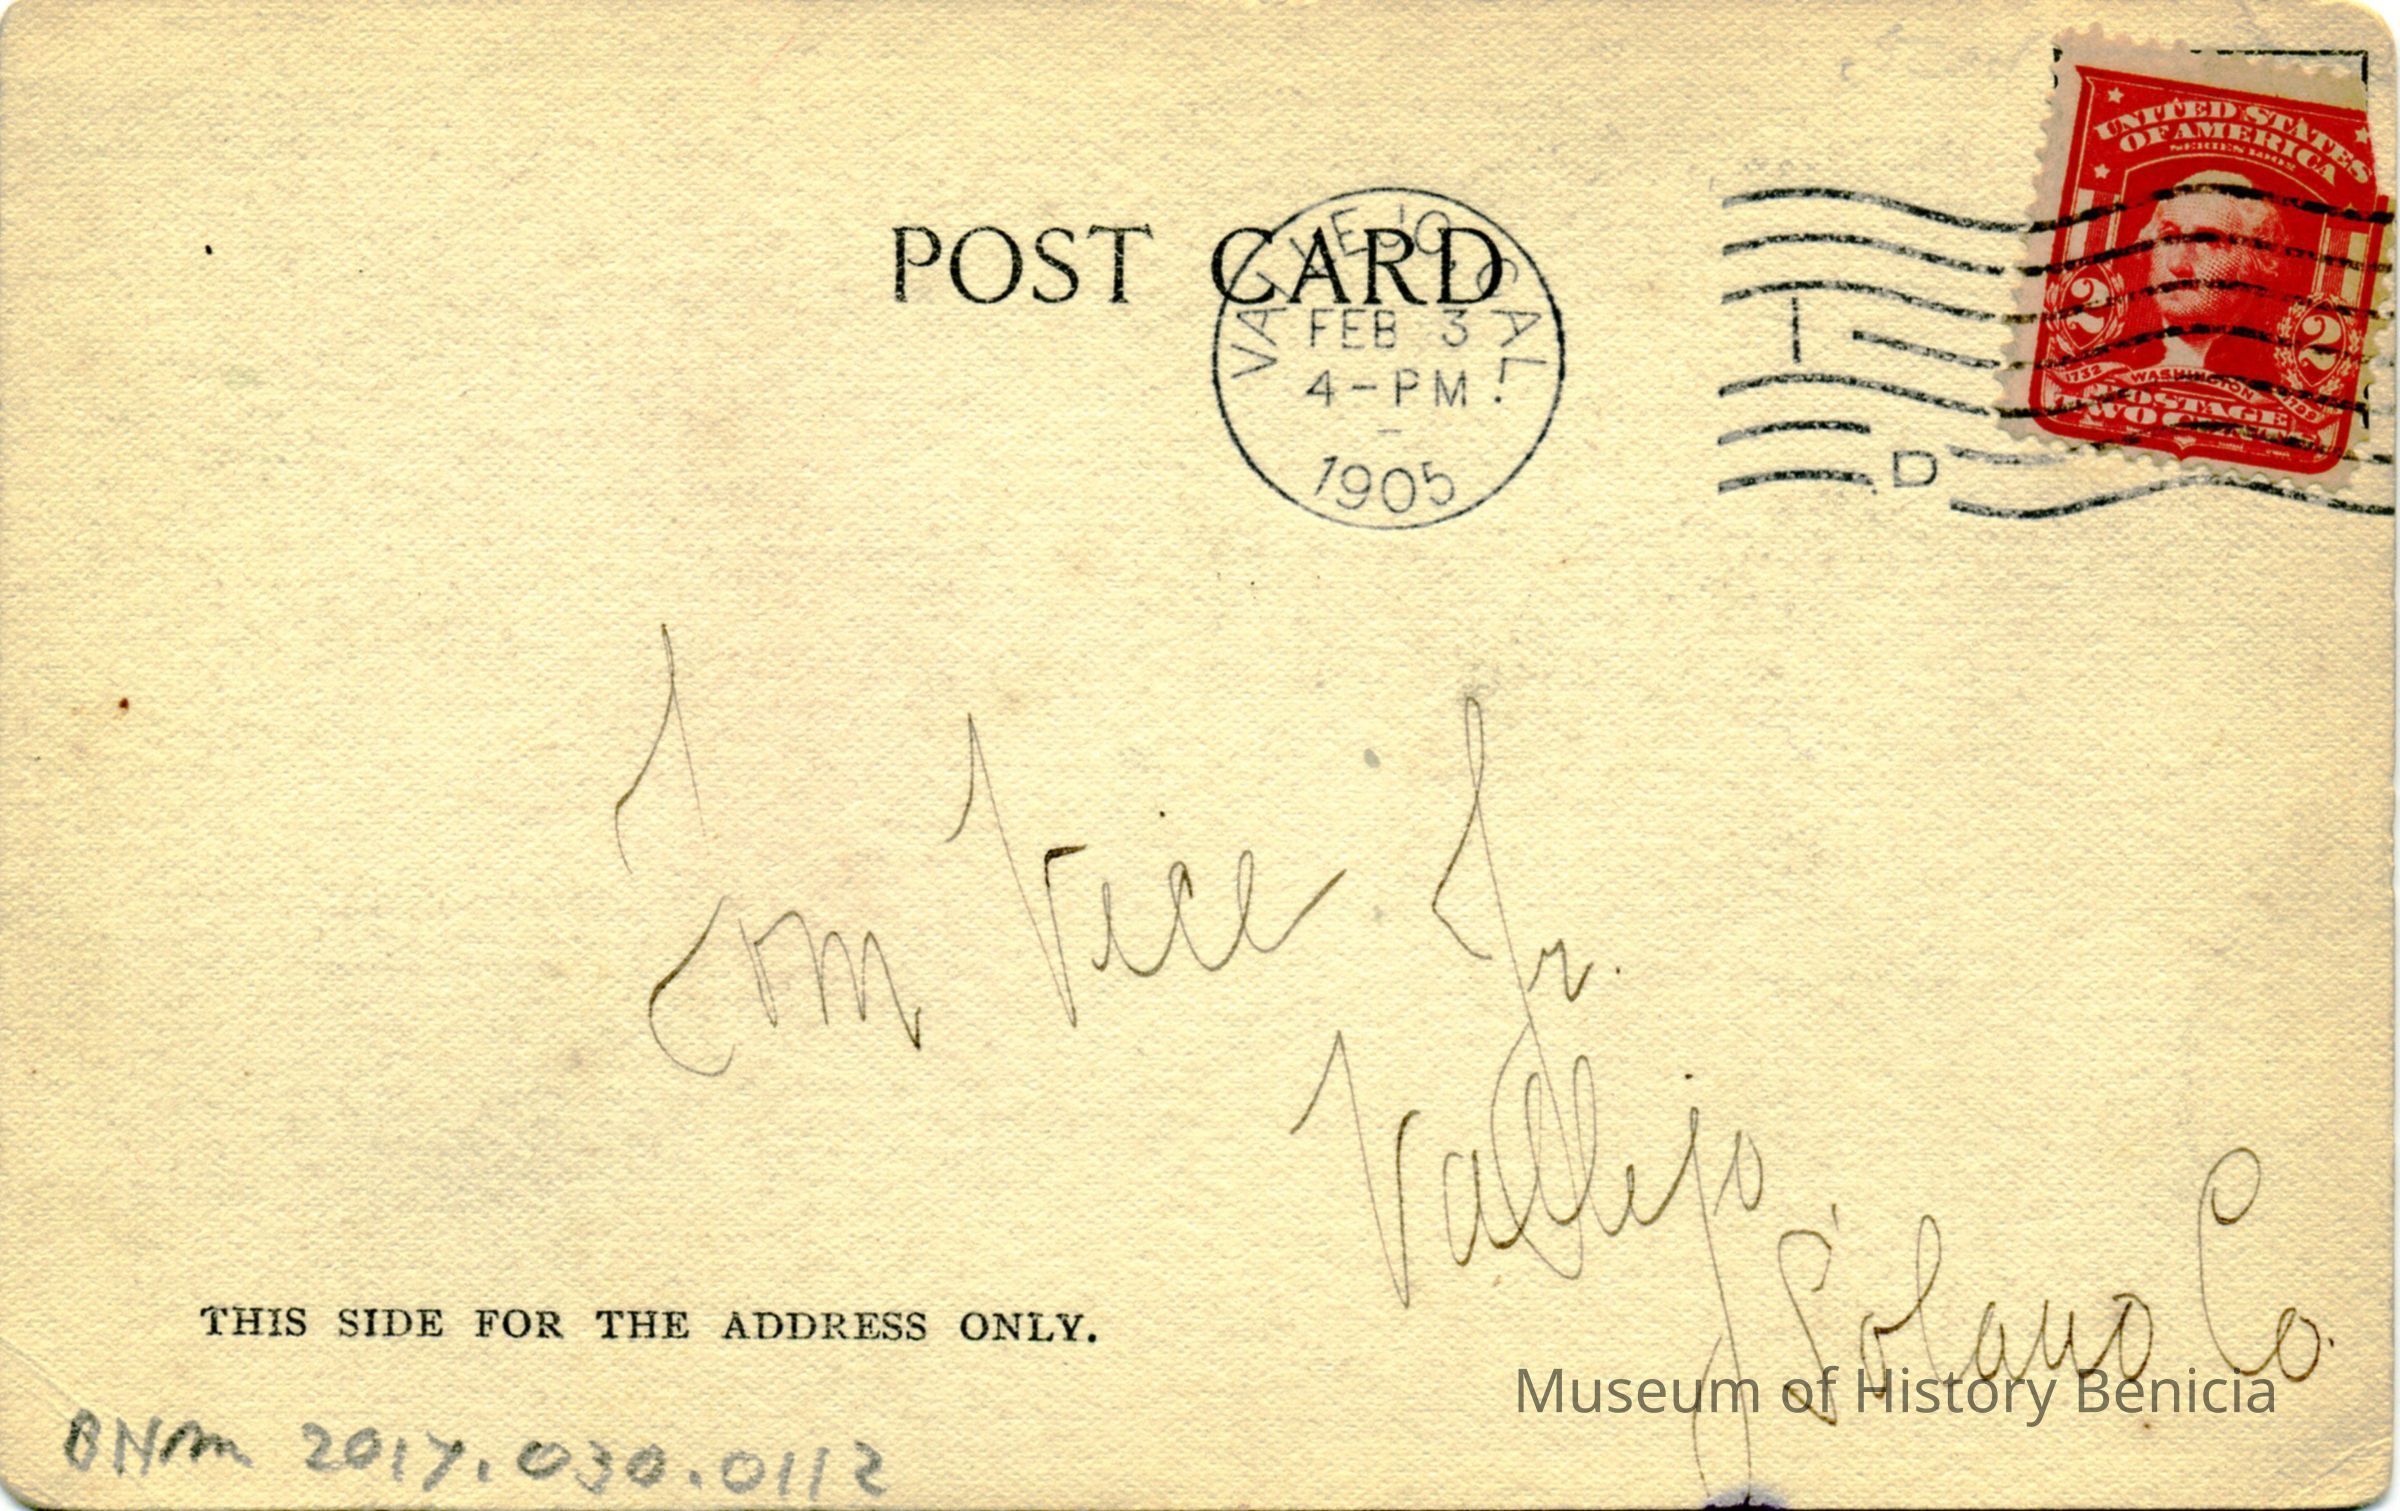 POST CARD
VALLEJO, CAL.
FEB 3
4-PM
1905
I
D
UNITED STATES
OF AMERICA
SERIES 1902
2 2
1732 WASHINGTON 1799
POSTAGE
TWO CENTS
Tom Vice Jr.
Vallejo
Solano Co.
THIS SIDE FOR THE ADDRESS ONLY.
Museum of History Benicia
BHM 2017.030.0112